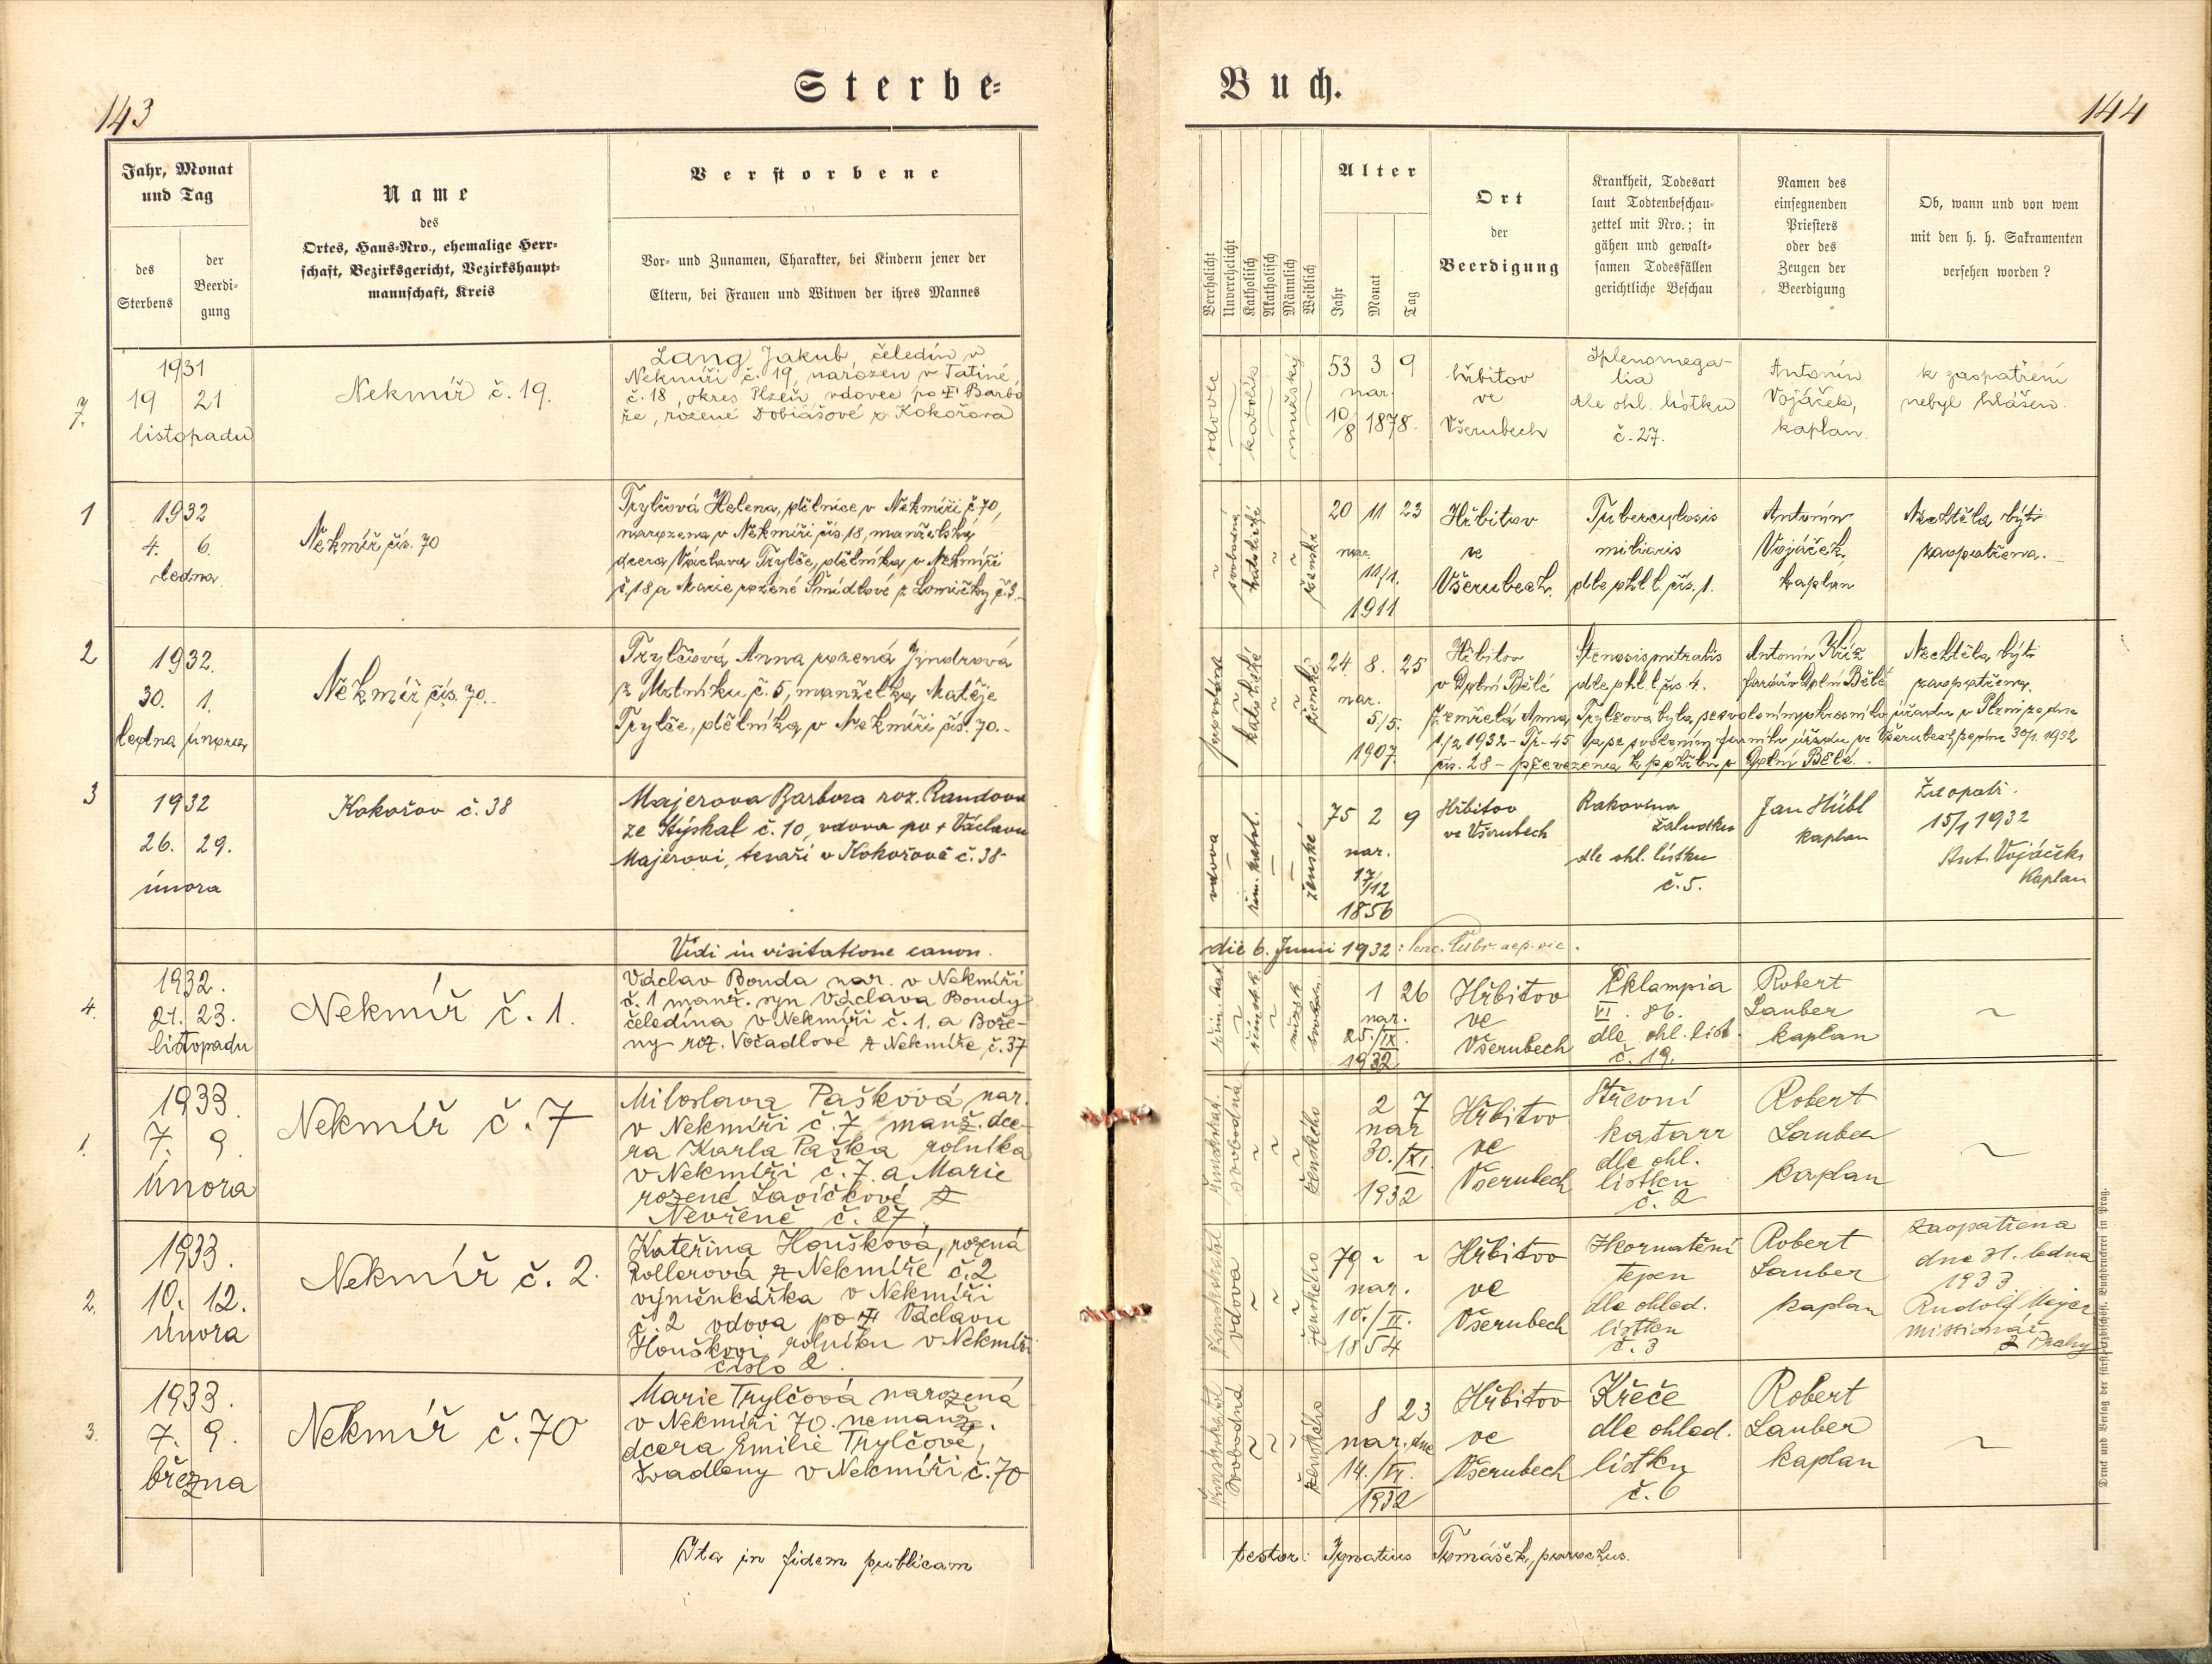 143
Sterbe=
Jahr, Monat
und Tag
des
Sterbens
der
Beerdi=
gung
Name
des
Ortes, Haus=Nro., ehemalige Herr=
schaft, Bezirksgericht, Bezirkshaupt=
mannschaft, Kreis
Verstorbene
Vor= und Zunamen, Charakter, bei Kindern jener der
Eltern, bei Frauen und Witwen der ihres Mannes
7.
1931
19 21
listopadu
Nekmíř č. 19.
Lang Jakub, čeledín v
Nekmíři č. 19, narozen v Tatiné
č. 18, okres Plzeň, vdovec po † Barbo
ře, rozené Dobiášové z Kokořova
1
1932
4. 6.
ledna
Nekmíř čís. 70
Trylčová Helena, dělnice v Nekmíři č 70,
narozena v Nekmíři čís. 18, manželská
dcera Václava Trylče, dělníka v Nekmíři
č. 18 a Marie rozené Šmídlové z Lomičky č. 3.
2
1932.
30. 1.
ledna února
Nekmíř čís. 70.
Trylčová Anna rozená Jindrová
z Mrtníku č. 5, manželka Matěje
Trylče, dělníka v Nekmíři čís. 70.-
3
1932
26. 29.
února
Kokořov č. 38
Majerova Barbora roz. Randova
ze Stýskal č. 10, vdova po + Václavu
Majerovi, tesaři v Kokořově č. 38-
Vidi in visitatione canon.
4.
1932.
21. 23.
listopadu
Nekmíř č. 1.
Václav Bouda nar. v Nekmíři
č. 1 manž. syn Václava Boudy
čeledína v Nekmíři č. 1. a Bože-
ny roz. Vočadlové z Nekmíře č. 37
1.
1933.
7. 9.
února
Nekmíř č. 7
Miloslava Pašková nar.
v Nekmíři č. 7 manž. dce-
ra Karla Paška rolníka
v Nekmíři č. 7. a Marie
rozené Lavičkové z
Nevřeně č. 27.
2.
1933.
10. 12.
února
Nekmíř č. 2.
Kateřina Houšková, rozená
Rollerová z Nekmíře č. 2
výměnkářka v Nekmíři
č. 2 vdova po † Václavu
Houškovi rolníku v Nekmíři
číslo 2.
3.
1933.
7. 9.
března
Nekmíř č. 70
Marie Trylčová narozená
v Nekmíři 70. nemanž.
dcera Emilie Trylčové,
švadleny v Nekmíři č. 70
Ita in fidem publicam
144
Buch.
Verehelicht
Unverehelicht
Katholisch
Akatholisch
Männlich
Weiblich
Alter
Jahr
Monat
Tag
Ort
der
Beerdigung
Krankheit, Todesart
laut Todtenbeschau=
zettel mit Nro.; in
gähen und gewalt=
samen Todesfällen
gerichtliche Beschau
Namen des
einsegnenden
Priesters
oder des
Zeugen der
Beerdigung
Ob, wann und von wem
mit den h. h. Sakramenten
versehen worden?
vdovec
katolík
mužský
53 3 9
nar.
10/8 1878.
hřbitov
ve
Všerubech
Splenomega-
lia
dle ohl. lístku
č. 27.
Antonín
Vojáček,
kaplan
k zaopatření
nebyl hlášen.
svobodná
katolické
ženské
20 11 23
nar.
11/1.
1911
Hřbitov
ve
Všerubech.
Tuberculosis
miliaris
dle ohl l. čís. 1.
Antonín
Vojáček
kaplan
Nechtěla býti
zaopatřena.
katolické
ženské
24. 8. 25
nar.
5/5.
1907.
Hřbitov
v Dolní Bělé
Stenosis mitralis
dle ohl. l. čís 4.
Antonín Kříž
farář v Dolní Bělé
Nechtěla býti
zaopatřena.
Zemřelá Anna Trylčová byla se svolením okresního úřadu v Plzni ze dne
1/2 1932 - Tr-45 a se svolením farního úřadu ve Všerubech ze dne 30/1. 1932
čís. 28 - převezena k pohřbu v Dolní Bělé.
vdova
řím. katol.
ženské
75 2 9
nar.
17/12
1856
Hřbitov
ve Všerubech
Rakovina
žaludku
dle ohl. lístku
č. 5.
Jan Hübl
kaplan
Zaopatř.
15/1 1932
Ant. Vojáček
Kaplan
die 6. Junii 1932:
mužsk
1 26
nar.
25./IX.
1932
Hřbitov
ve
Všerubech
Eklampia
VI. 86.
dle ohl. líst.
č. 19.
Robert
Lauber
kaplan
~
svobodná
ženského
2 7
nar
30./XI.
1932
Hřbitov
ve
Všerubech
Střevní
katarr
dle ohl.
lístku
č. 2
Robert
Lauber
kaplan
~
vdova
ženského
79 ~ ~
nar.
10./II.
1854
Hřbitov
ve
Všerubech
Zkornatění
tepen
dle ohled.
lístku
č. 3
Robert
Lauber
kaplan
Zaopatřena
dne 31. ledna
1933
Rudolf Mejer
missionář
z Prahy
svobodná
ženského
8 23
nar. dne
14./VI.
1932
Hřbitov
ve
Všerubech
Křeče
dle ohled.
lístku
č. 6
Robert
Lauber
kaplan
~
testor: Ignatius Tomášek, parochus.
Druck und Verlag der fürsterzbischöfl. Buchdruckerei in Prag.